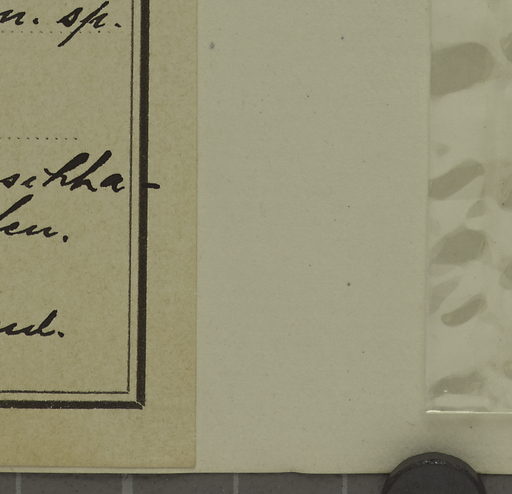 n. sp.
sikha-
en.
nd.